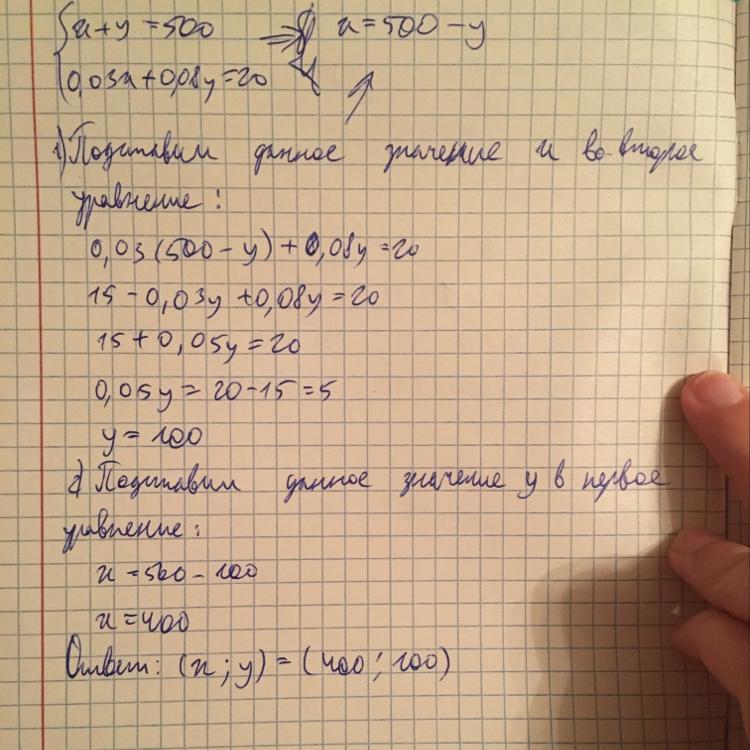 x+y=500 => x=500-y
0,03x+0,08y=20
1) Подставим данное значение x во второе
уравнение:
0,03(500-y)+0,08y=20
15-0,03y+0,08y=20
15+0,05y=20
0,05y=20-15=5
y=100
2) Подставим данное значение y в первое
уравнение:
x=500-100
x=400
Ответ: (x;y)=(400;100)